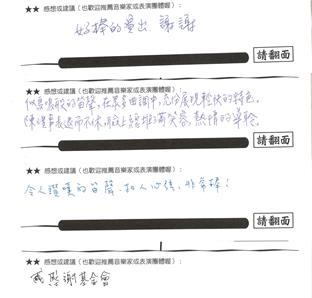 ★★ 感想或建議（也歡迎推薦音樂家或表演團體喔）：
好棒的演出，謝謝
請翻面
★★ 感想或建議（也歡迎推薦音樂家或表演團體喔）：
的笛聲，在眾多曲調中，充份展現輕快的特色。
熱情的
請翻面
★★ 感想或建議（也歡迎推薦音樂家或表演團體喔）：
令人讚嘆的笛聲，扣人心弦，非常棒！
請翻面
★★ 感想或建議（也歡迎推薦音樂家或表演團體喔）：
感恩謝基金會